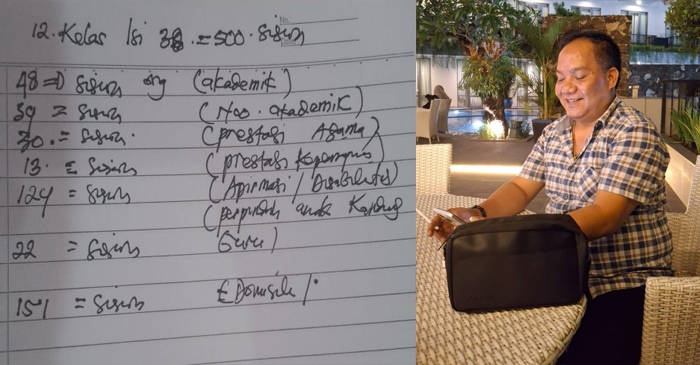 12. Kelas Isi 38 = 500 Siswa
No.
48 => Siswa org (akademik)
39 = Siswa (Non. akademik)
30. = Siswa. (prestasi Agama)
13. = Siswa (prestasi
124 = Siswa (Apirmasi / Disabilitas)
22 = Siswa Guru)
151 = Siswa Domisili /